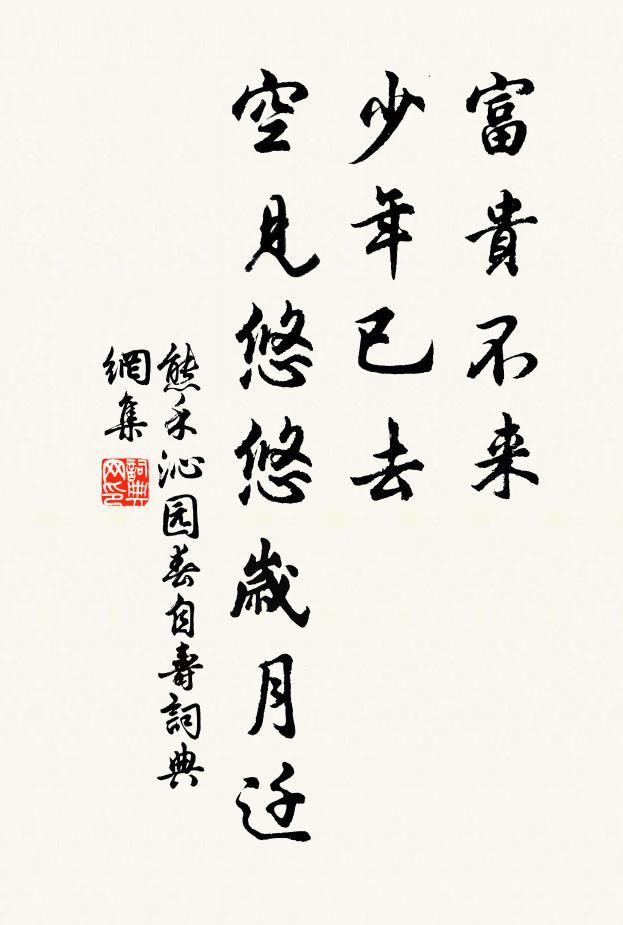 富貴不来
少年已去
空見悠悠歲月迁
熊禾沁园春自壽詞典
網集
詞典
网印